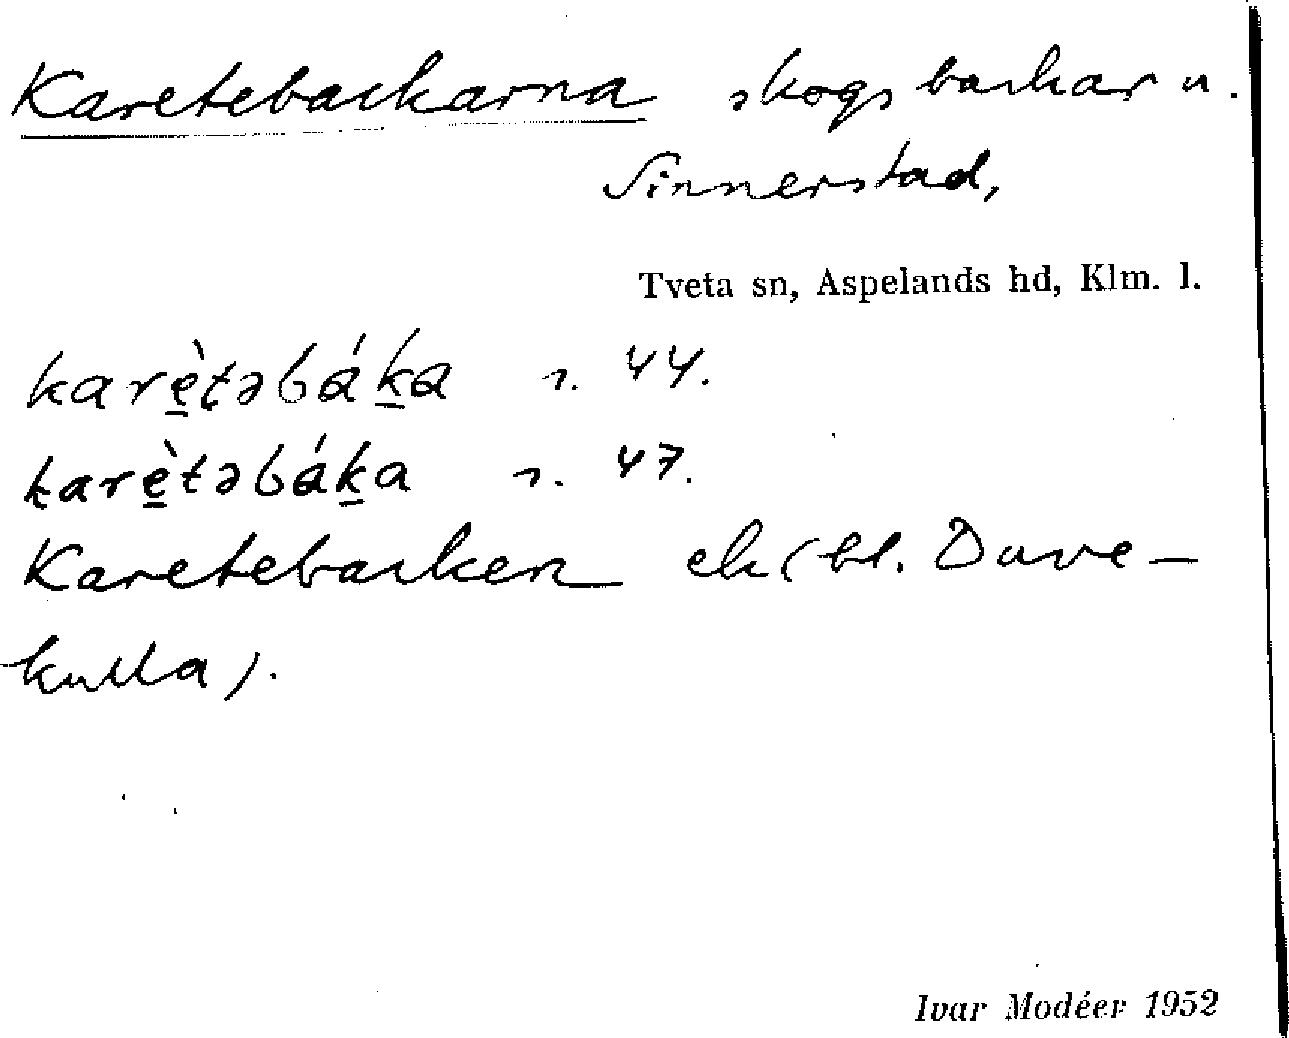 Karetebackarna skogsbackar u.
Sinnerstad,
Tveta sn, Aspelands hd, Klm. l.
karè̱tǝbáḵa s. 44.
karè̱tǝbáḵa s. 47.
Karetebacken ek (bl. Duve-
kulla).
Ivar Modéer 1952